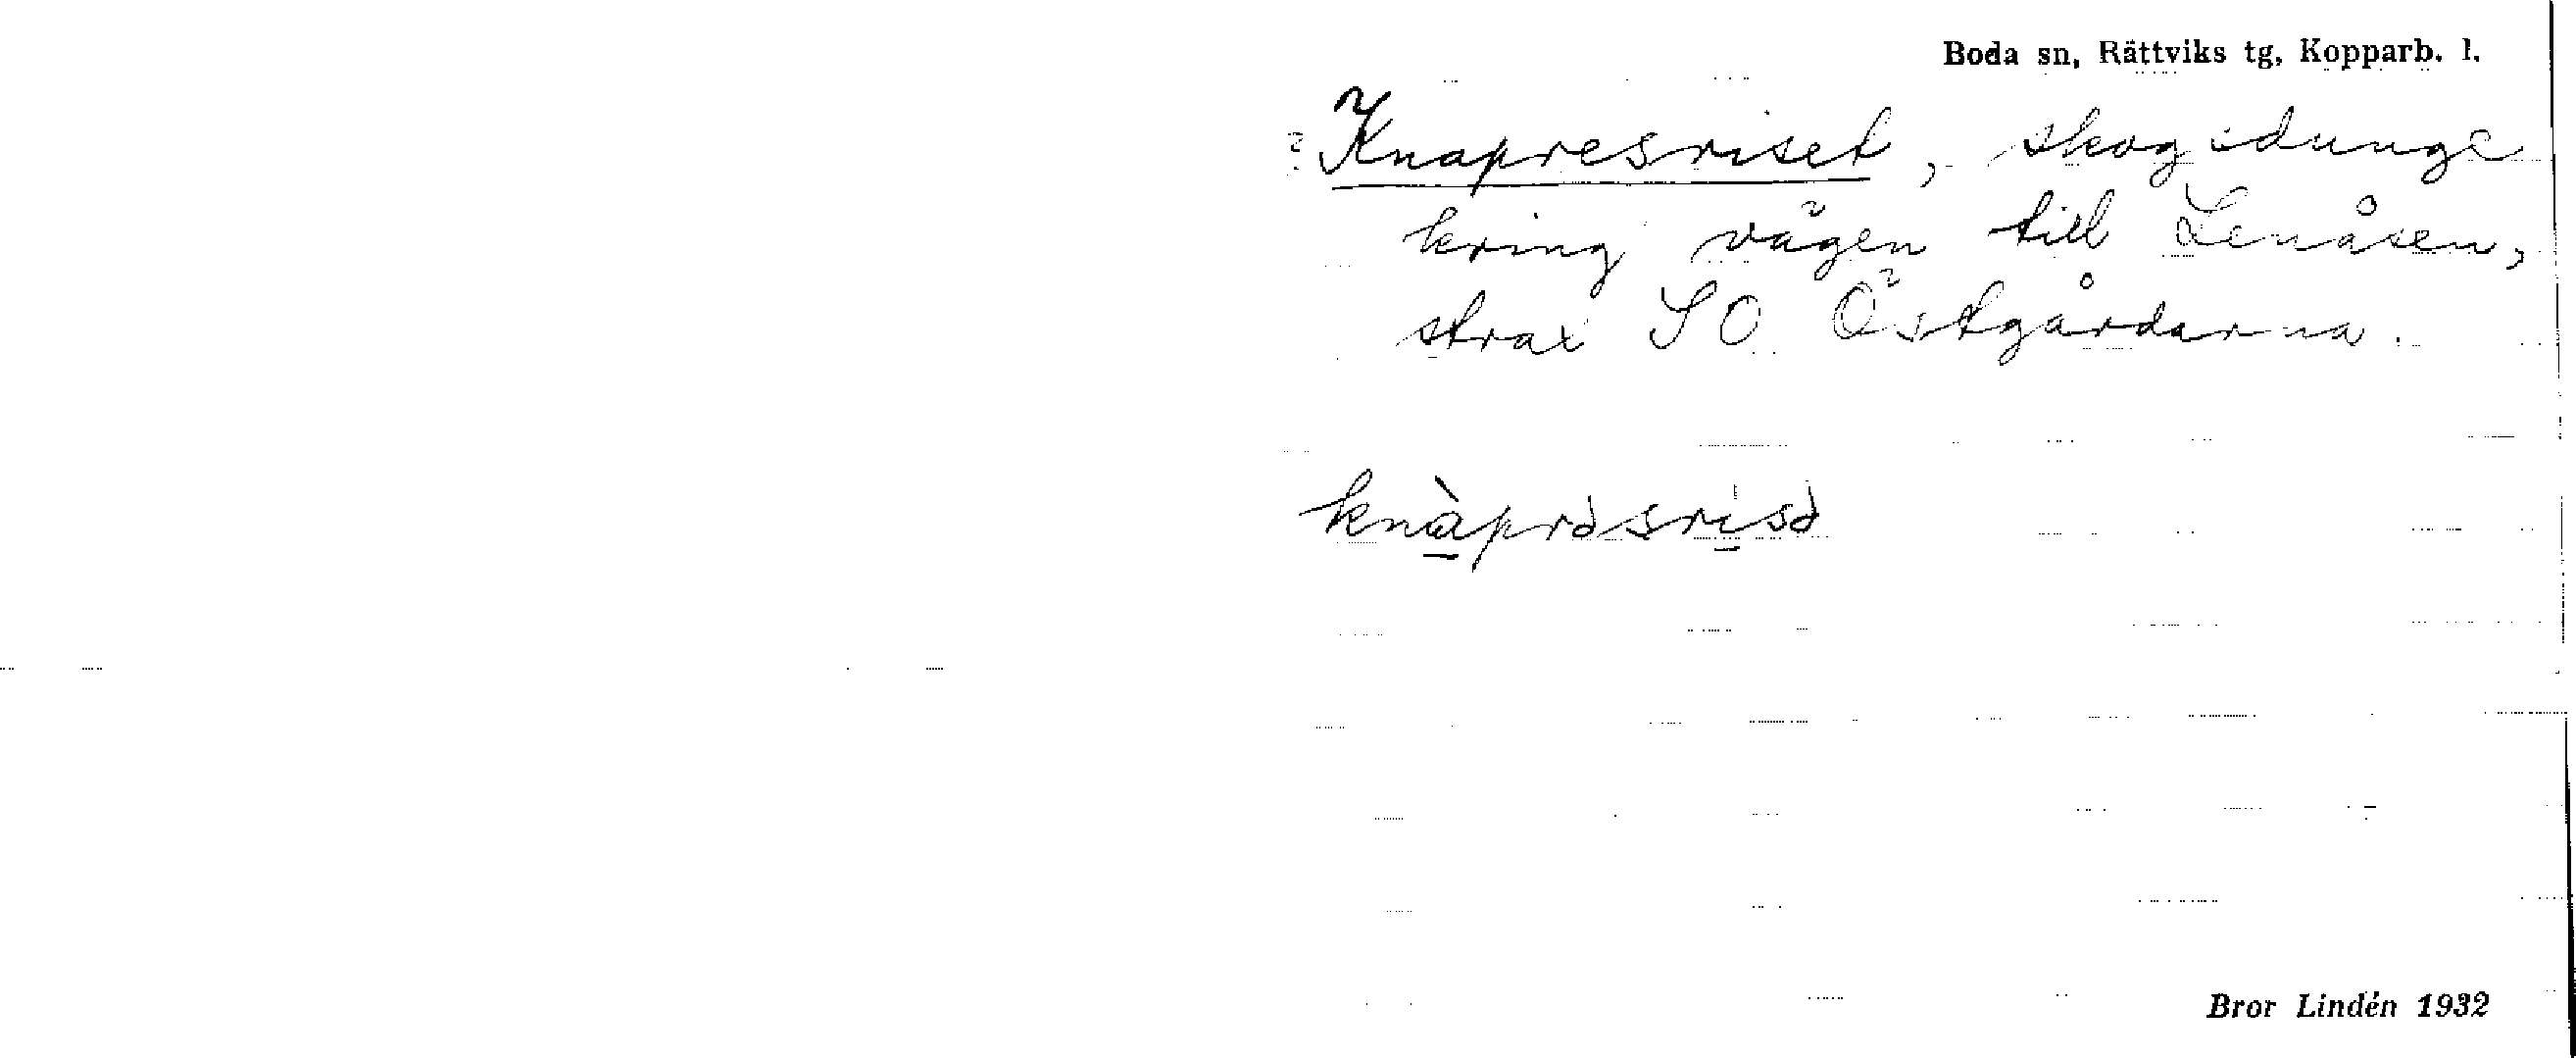 Boda sn, Rättviks tg, Kopparb. l.
Knapresriset, skogsdunge
kring vägen till Lenåsen,
strax SO Östgårdarna.
knàprəsrisə
Bror Lindén 1932